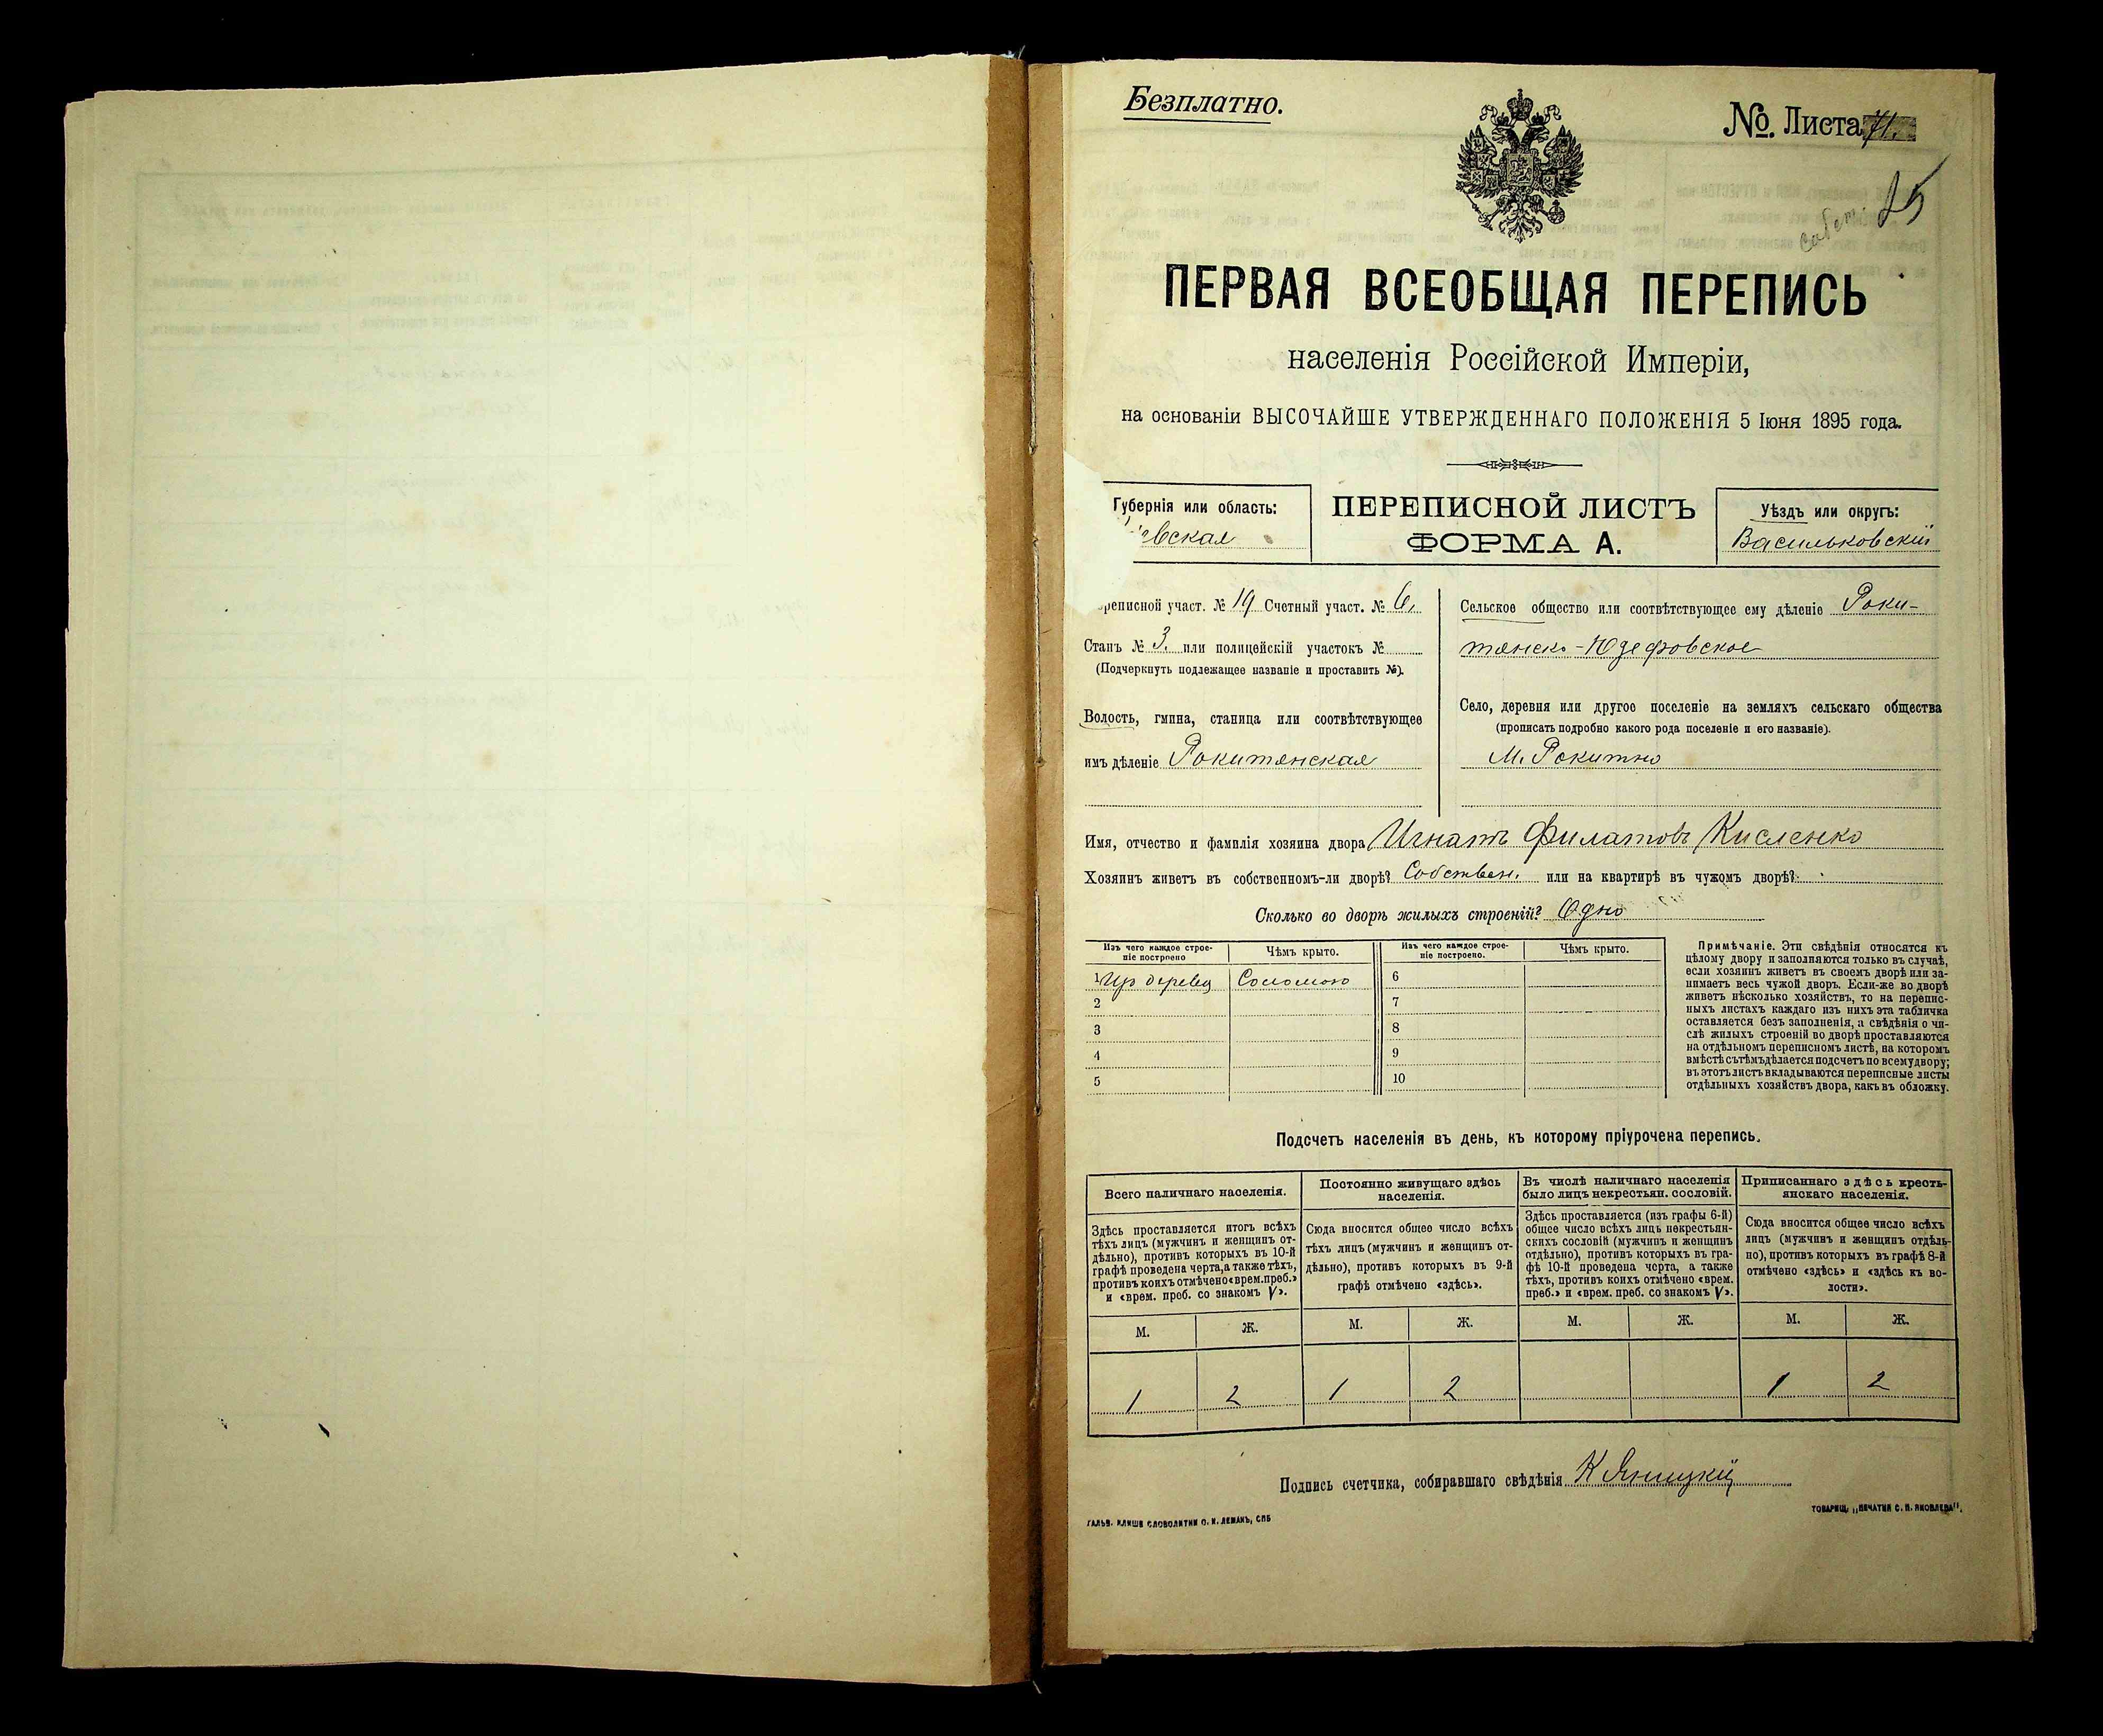 Безплатно.
№ Листа 71.
15
ПЕРВАЯ ВСЕОБЩАЯ ПЕРЕПИСЬ
населенія Россійской Имперіи,
на основаніи ВЫСОЧАЙШЕ УТВЕРЖДЕННАГО ПОЛОЖЕНІЯ 5 Іюня 1895 года.
Губернія или область:
евская
ПЕРЕПИСНОЙ ЛИСТЪ
ФОРМА А.
Уѣздъ или округъ:
Васильковскій
реписной участ. № 19 Счетный участ. № 6.
Станъ № 3. или полицейскій участокъ №
(Подчеркнуть подлежащее названіе и проставить №).
Волость, гмина, станица или соотвѣтствующее
имъ дѣленіе Рокитянская
Сельское общество или соотвѣтствующее ему дѣленіе Роки-
тянско-Юзефовское
Село, деревня или другое поселеніе на земляхъ сельскаго общества
(прописать подробно какого рода поселеніе и его названіе).
М. Рокитно
Имя, отчество и фамилія хозяина двора Игнатъ Филатовъ Кисленко
Хозяинъ живетъ въ собственномъ-ли дворѣ? Собствен. или на квартирѣ въ чужомъ дворѣ?
Сколько во дворѣ жилыхъ строеній? Одно
Изъ чего каждое строе-
ніе построено
Чѣмъ крыто.
Изъ чего каждое строе-
ніе построено.
Чѣмъ крыто.
1 Из дерева Соломою 6
2 7
3 8
4 9
5 10
Примѣчаніе. Эти свѣдѣнія относятся къ
цѣлому двору и заполняются только въ случаѣ,
если хозяинъ живетъ въ своемъ дворѣ или за-
нимаетъ весь чужой дворъ. Если-же во дворѣ
живетъ нѣсколько хозяйствъ, то на перепис-
ныхъ листахъ каждаго изъ нихъ эта табличка
оставляется безъ заполненія, а свѣдѣнія о чи-
слѣ жилыхъ строеній во дворѣ проставляются
на отдѣльномъ переписномъ листѣ, на которомъ
вмѣстѣ съ тѣмъ дѣлается подсчетъ по всему двору;
въ этотъ листъ вкладываются переписные листы
отдѣльныхъ хозяйствъ двора, какъ въ обложку.
Подсчетъ населенія въ день, къ которому пріурочена перепись.
Всего наличнаго населенія.
Здѣсь проставляется итогъ всѣхъ
тѣхъ лицъ (мужчинъ и женщинъ от-
дѣльно), противъ которыхъ въ 10-й
графѣ проведена черта, а также тѣхъ,
противъ коихъ отмѣчено «врем. преб.»
и «врем. преб. со знакомъ V».
Постоянно живущаго здѣсь
населенія.
Сюда вносится общее число всѣхъ
тѣхъ лицъ (мужчинъ и женщинъ от-
дѣльно), противъ которыхъ въ 9-й
графѣ отмѣчено «здѣсь».
Въ числѣ наличнаго населенія
было лицъ некрестьян. сословій.
Здѣсь проставляется (изъ графы 6-й)
общее число всѣхъ лицъ некрестьян-
скихъ сословій (мужчинъ и женщинъ
отдѣльно), противъ которыхъ въ гра-
фѣ 10-й проведена черта, а также
тѣхъ, противъ коихъ отмѣчено «врем.
преб.» и «врем. преб. со знакомъ V».
Приписаннаго здѣсь кресть-
янскаго населенія.
Сюда вносится общее число всѣхъ
лицъ (мужчинъ и женщинъ отдѣль-
но), противъ которыхъ въ графѣ 8-й
отмѣчено «здѣсь» и «здѣсь къ во-
лости».
М. Ж. М. Ж. М. Ж. М. Ж.
1 2 1 2 1 2
Подпись счетчика, собиравшаго свѣдѣнія К Яницкій
ГАЛЬВ. КЛИШЕ СЛОВОЛИТНИ О. И. ЛЕМАНЪ, СПБ
ТОВАРИЩ. „ПЕЧАТНЯ С. П. ЯКОВЛЕВА".